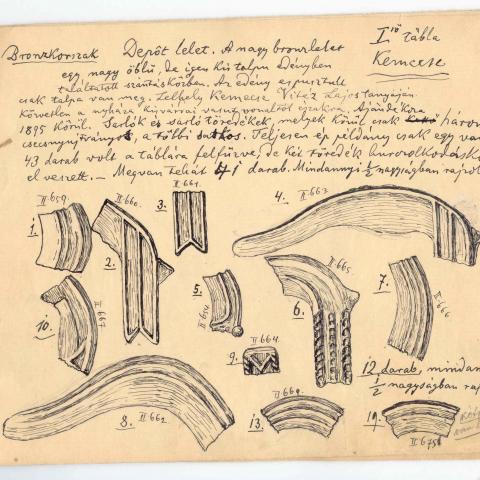 Bronzkorszak Depôt lelet. A nagy bronzlelet
I ső tábla
Kemecse
egy nagy öblű, de igen kis talpu edényben
találtatott szántás közben. Az edény elpusztult
csak talpa van meg. Lelhely Kemecse Vitéz Lajos tanyáján.
Követlen a nyháza kisvárdai vasutvonaltól északra. Ajándékozta
1895 körül. Sarlók és sarló töredékek, melyek közül csak három
csecsnyúlványos, a többi Teljesen ép példány csak egy van
43 darab volt a táblára felfűzve, de két töredék
elveszett. — Megvan tehát 41 darab. Mindannyi 1/2 nagyságban
1. II 659.
2. II 660.
3. II 661.
4. II 663
5. II 654.
6. II 665.
7. II 666
10. II 667
8. II 662
9. II 664.
13. II 669.
12 darab, mindan
1/2 nagyságban raj
19. II 675